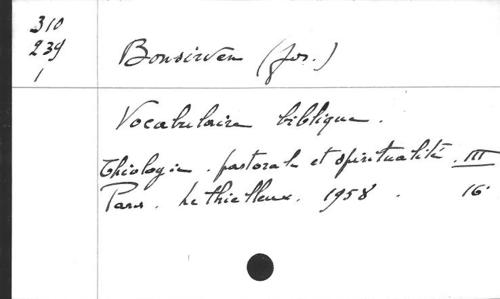 310
239
1
Bonsirven (Jos.)
Vocabulaire biblique.
Théologie. pastorale et spiritualité. III
Paris. Lethielleux. 1958. 16°